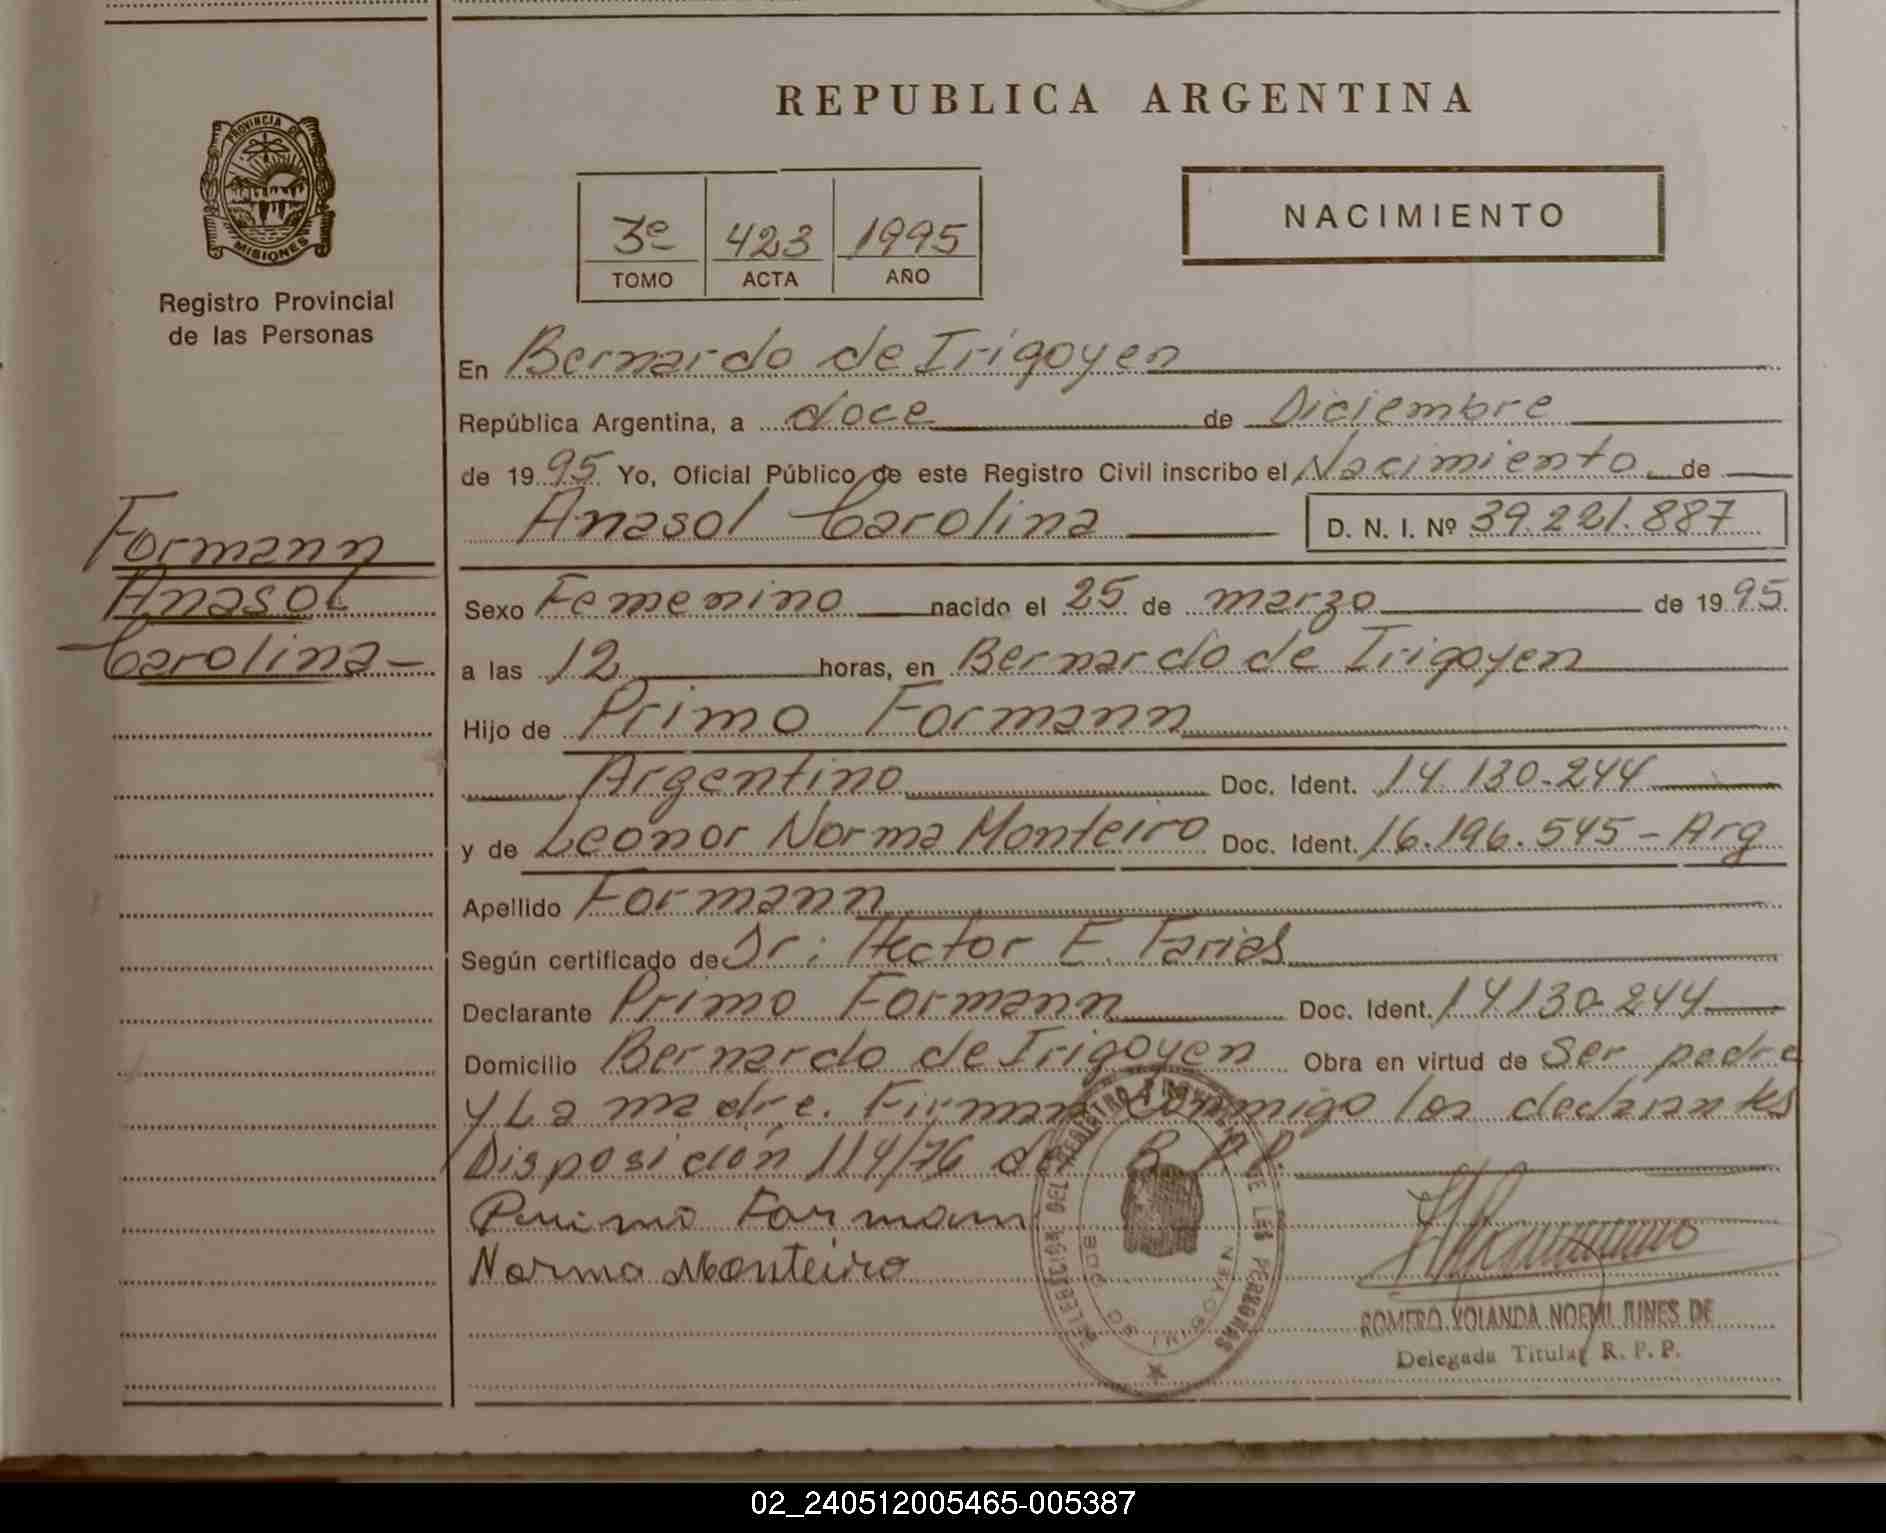 REPUBLICA ARGENTINA
PROVINCIA DE
MISIONES
Registro Provincial
de las Personas
3º 423 1995
TOMO ACTA AÑO
NACIMIENTO
En Bernardo de Irigoyen
República Argentina, a doce de Diciembre
de 1995 Yo, Oficial Público de este Registro Civil inscribo el Nacimiento de
Anasol Carolina D. N. I. Nº 39.221.887
Formann
Anasol
Carolina
Sexo Femenino nacido el 25 de marzo de 1995
a las 12 horas, en Bernardo de Irigoyen
Hijo de Primo Formann
Argentino Doc. Ident. 14.130.244
y de Leonor Norma Monteiro Doc. Ident. 16.196.545 - Arg
Apellido Formann
Según certificado de Dr: Hector E. Farias
Declarante Primo Formann Doc. Ident. 14130.244
Domicilio Bernardo de Irigoyen Obra en virtud de Ser padre
y La madre. Firman conmigo los
Disposición 114/76 del R.P.P.
Formann
Norma Monteiro
DEL REGISTRO PROVINCIAL DE LAS PERSONAS
ROMERO YOLANDA NOEMI JUNES DE
Delegada Titular R. P. P.
02_240512005465-005387